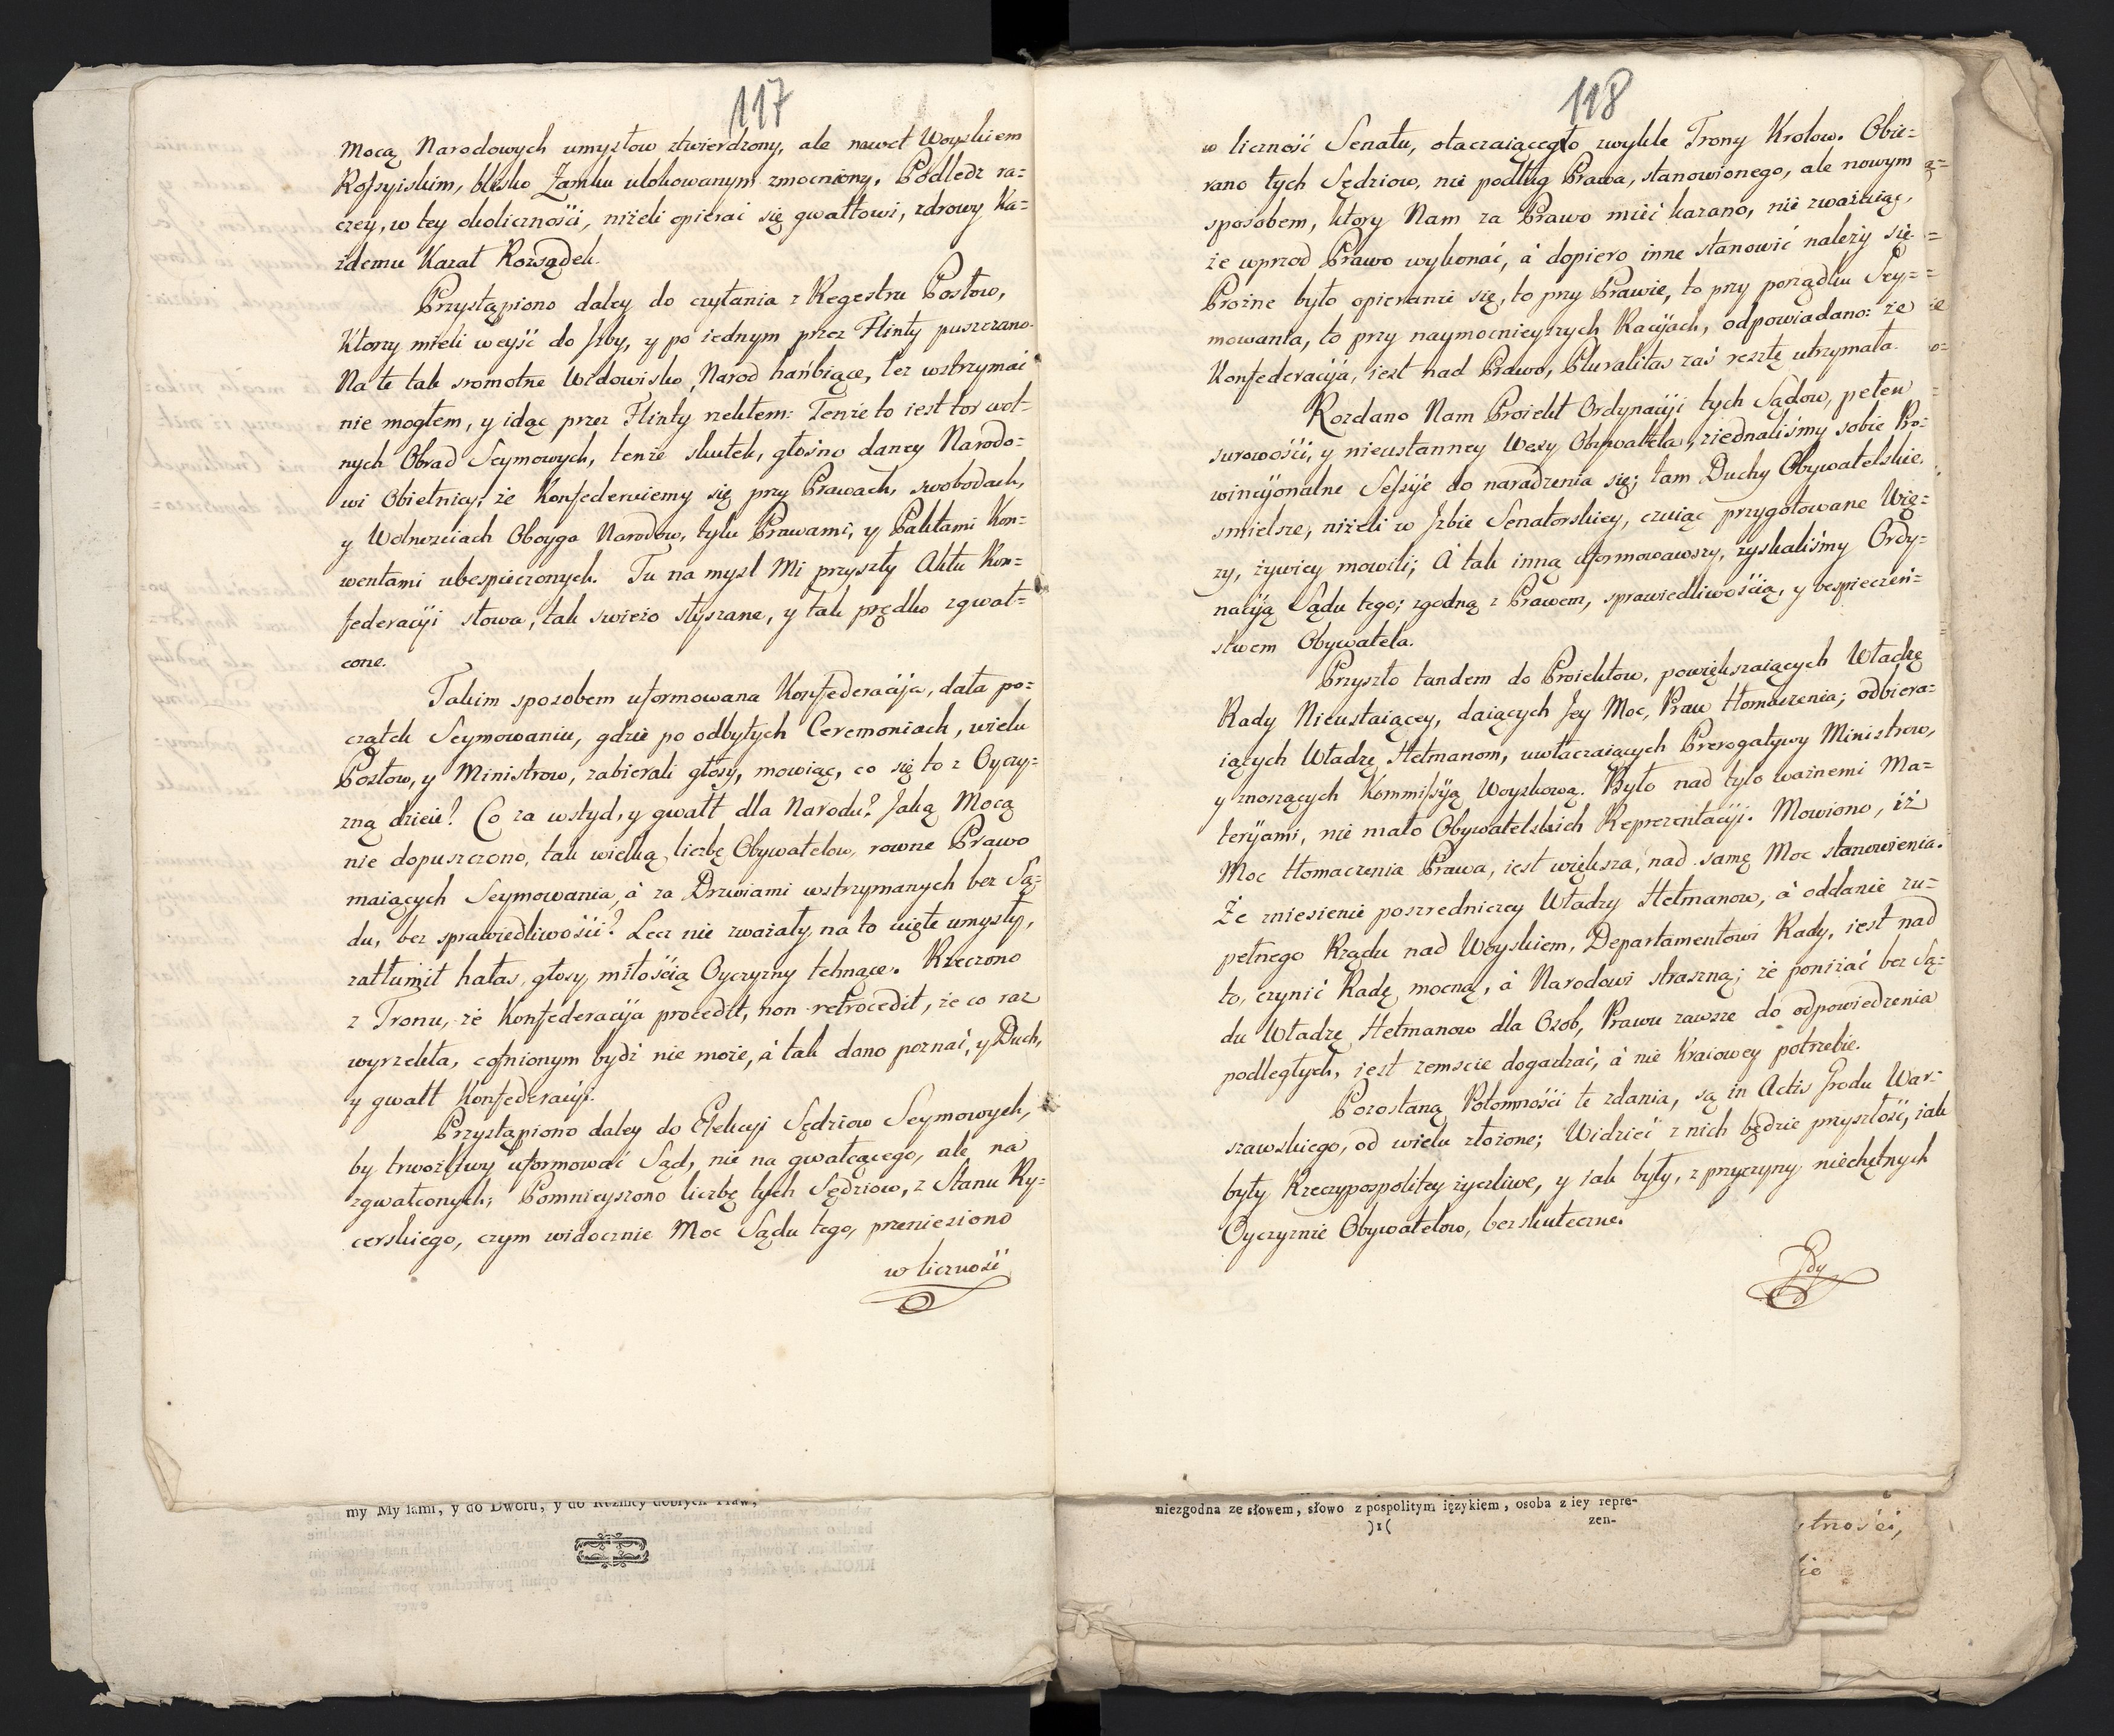 117
Mocą Narodowych umysłow ztwierdzony, ale nawet Woyskiem
Rossyiskim, blisko Zamku ulokowanym zmocniony. Podledz ra=
czey, w tey okoliczności, niżeli opierać się gwałtowi, zdrowy ka=
żdemu Kazał Rozsądek.
Przystąpiono daley do czytania z Regestru Posłow,
Ktorzy mieli weyść do Jzby, y po iednym przez Flinty puszczano.
Na te tak sromotne Widowisko, Narod hańbiące, łez wstrzymać
nie mogłem, y idąc przez Flinty rzekłem: Tenże to iest tor wol=
nych Obrad Seymowych, tenże skutek, głośno daney Narodo=
wi Obietnicy; że Konfederuiemy się przy Prawach, swobodach,
y Wolnościach Oboyga Narodow, tylu Prawami, y Paktami Kon=
wentami ubespieczonych. Tu na mysl Mi przyszły Aktu Kon=
federacyi słowa, tak świeżo słyszane, y tak prędko zgwał=
cone.
Takim sposobem uformowana Konfederacyja, dała po=
czątek Seymowaniu, gdzie po odbytych Ceremoniach, wielu
Posłow, y Ministrow, zabierali głosy, mowiąc, co się to z Oyczy=
zną dzieie? Co za wstyd, y gwałt dla Narodu? Jaką Mocą
nie dopuszczono, tak wielką liczbę Obywatelow, rowne Prawo
maiących Seymowania, á za Drzwiami wstrzymanych bez Są=
du, bez sprawiedliwości? Lecz nie zważały na to uięte umysły,
zatłumił hałas, głosy, miłością Oyczyzny tchnące. Rzeczono
z Tronu, że Konfederacyja procedit, non retrocedit, że co raz
wyrzekła, cofnionym bydź nie może, á tak dano poznać, y Duch,
y gwałt Konfederacyi.
Przystąpiono daley do Elekcyi Sędziow Seymowych,
by trwożliwy uformować Sąd, nie na gwałcącego, ale na
zgwałconych; Pomnieyszono liczbę tych Sędziow, z Stanu Ry=
cerskiego, czym widocznie Moc Sądu tego, przeniesiono
w liczność
my My sami, y do Dworu, y do
118
w liczność Senatu, otaczaiącego zwykle Trony Krolow. Obie=
rano tych Sędziow, nie podług Prawa, stanowionego, ale nowym
sposobem, ktory Nam za Prawo mieć kazano, nie zważaiąc,
że wprzod Prawo wykonać, á dopiero inne stanowić należy się.
Prożne było opieranie się, to przy Prawie, to przy porządku Sey=
mowania, to przy naymocnieyszych Racyjach, odpowiadano: że
Konfederacyja, iest nad Prawo, Pluralitas zaś resztę utrzymała.
Rozdano Nam Proiekt Ordynacyi tych Sądow, pełen
surowości, y nieustanney Wexy Obywatela, ziednaliśmy sobie Pro=
wincyonalne Sessyje do naradzenia się; tam Duchy Obywatelskie.
smielsze, niżeli w Jzbie Senatorskiey, czuiąc przygotowane Wię=
zy, żywiey mowili; A tak inną uformowawszy, zyskaliśmy Ordy=
nacyją Sądu tego; zgodną z Prawem, sprawiedliwością, y bespieczeń=
stwem Obywatela.
Przyszło tandem do Proiektow, powiększaiących Władzę
Rady Nieustaiącey, daiących Jey Moc, Praw tłomaczenia; odbiera=
iących Władzę Hetmanom, uwłaczaiących Prerogatywy Ministrow,
y znoszących Kommissyją Woyskową. Było nad tylo ważnemi Ma=
teryjami, nie mało Obywatelskich Reprezentacyi. Mowiono, iż
Moc tłomaczenia Prawa, iest większa, nad samę Moc stanowienia.
Że zniesienie poszredniczey Władzy Hetmanow, á oddanie zu=
pełnego Rządu nad Woyskiem, Departamentowi Rady, iest nad
to, czynić Radę mocną, á Narodowi straszną; że poniżać bez Są=
du Władzę Hetmanow dla Osob, Prawu zawsze do odpowiedzenia
podległych, iest zemscie dogadzać, á nie Kraiowey potrzebie.
Pozostaną Potomności te zdania, są in Actis Grodu War=
szawskiego, od wielu złożone; Widzieć z nich będzie przyszłość, iak
były Rzeczypospolitey życzliwe, y iak były, z przyczyny niechętnych
Oyczyznie Obywatelow, bezskuteczne.
Gdy
niezgodna ze słowem, słowo z pospolitym ięzykiem, osoba z iey repre-
)1( zen-